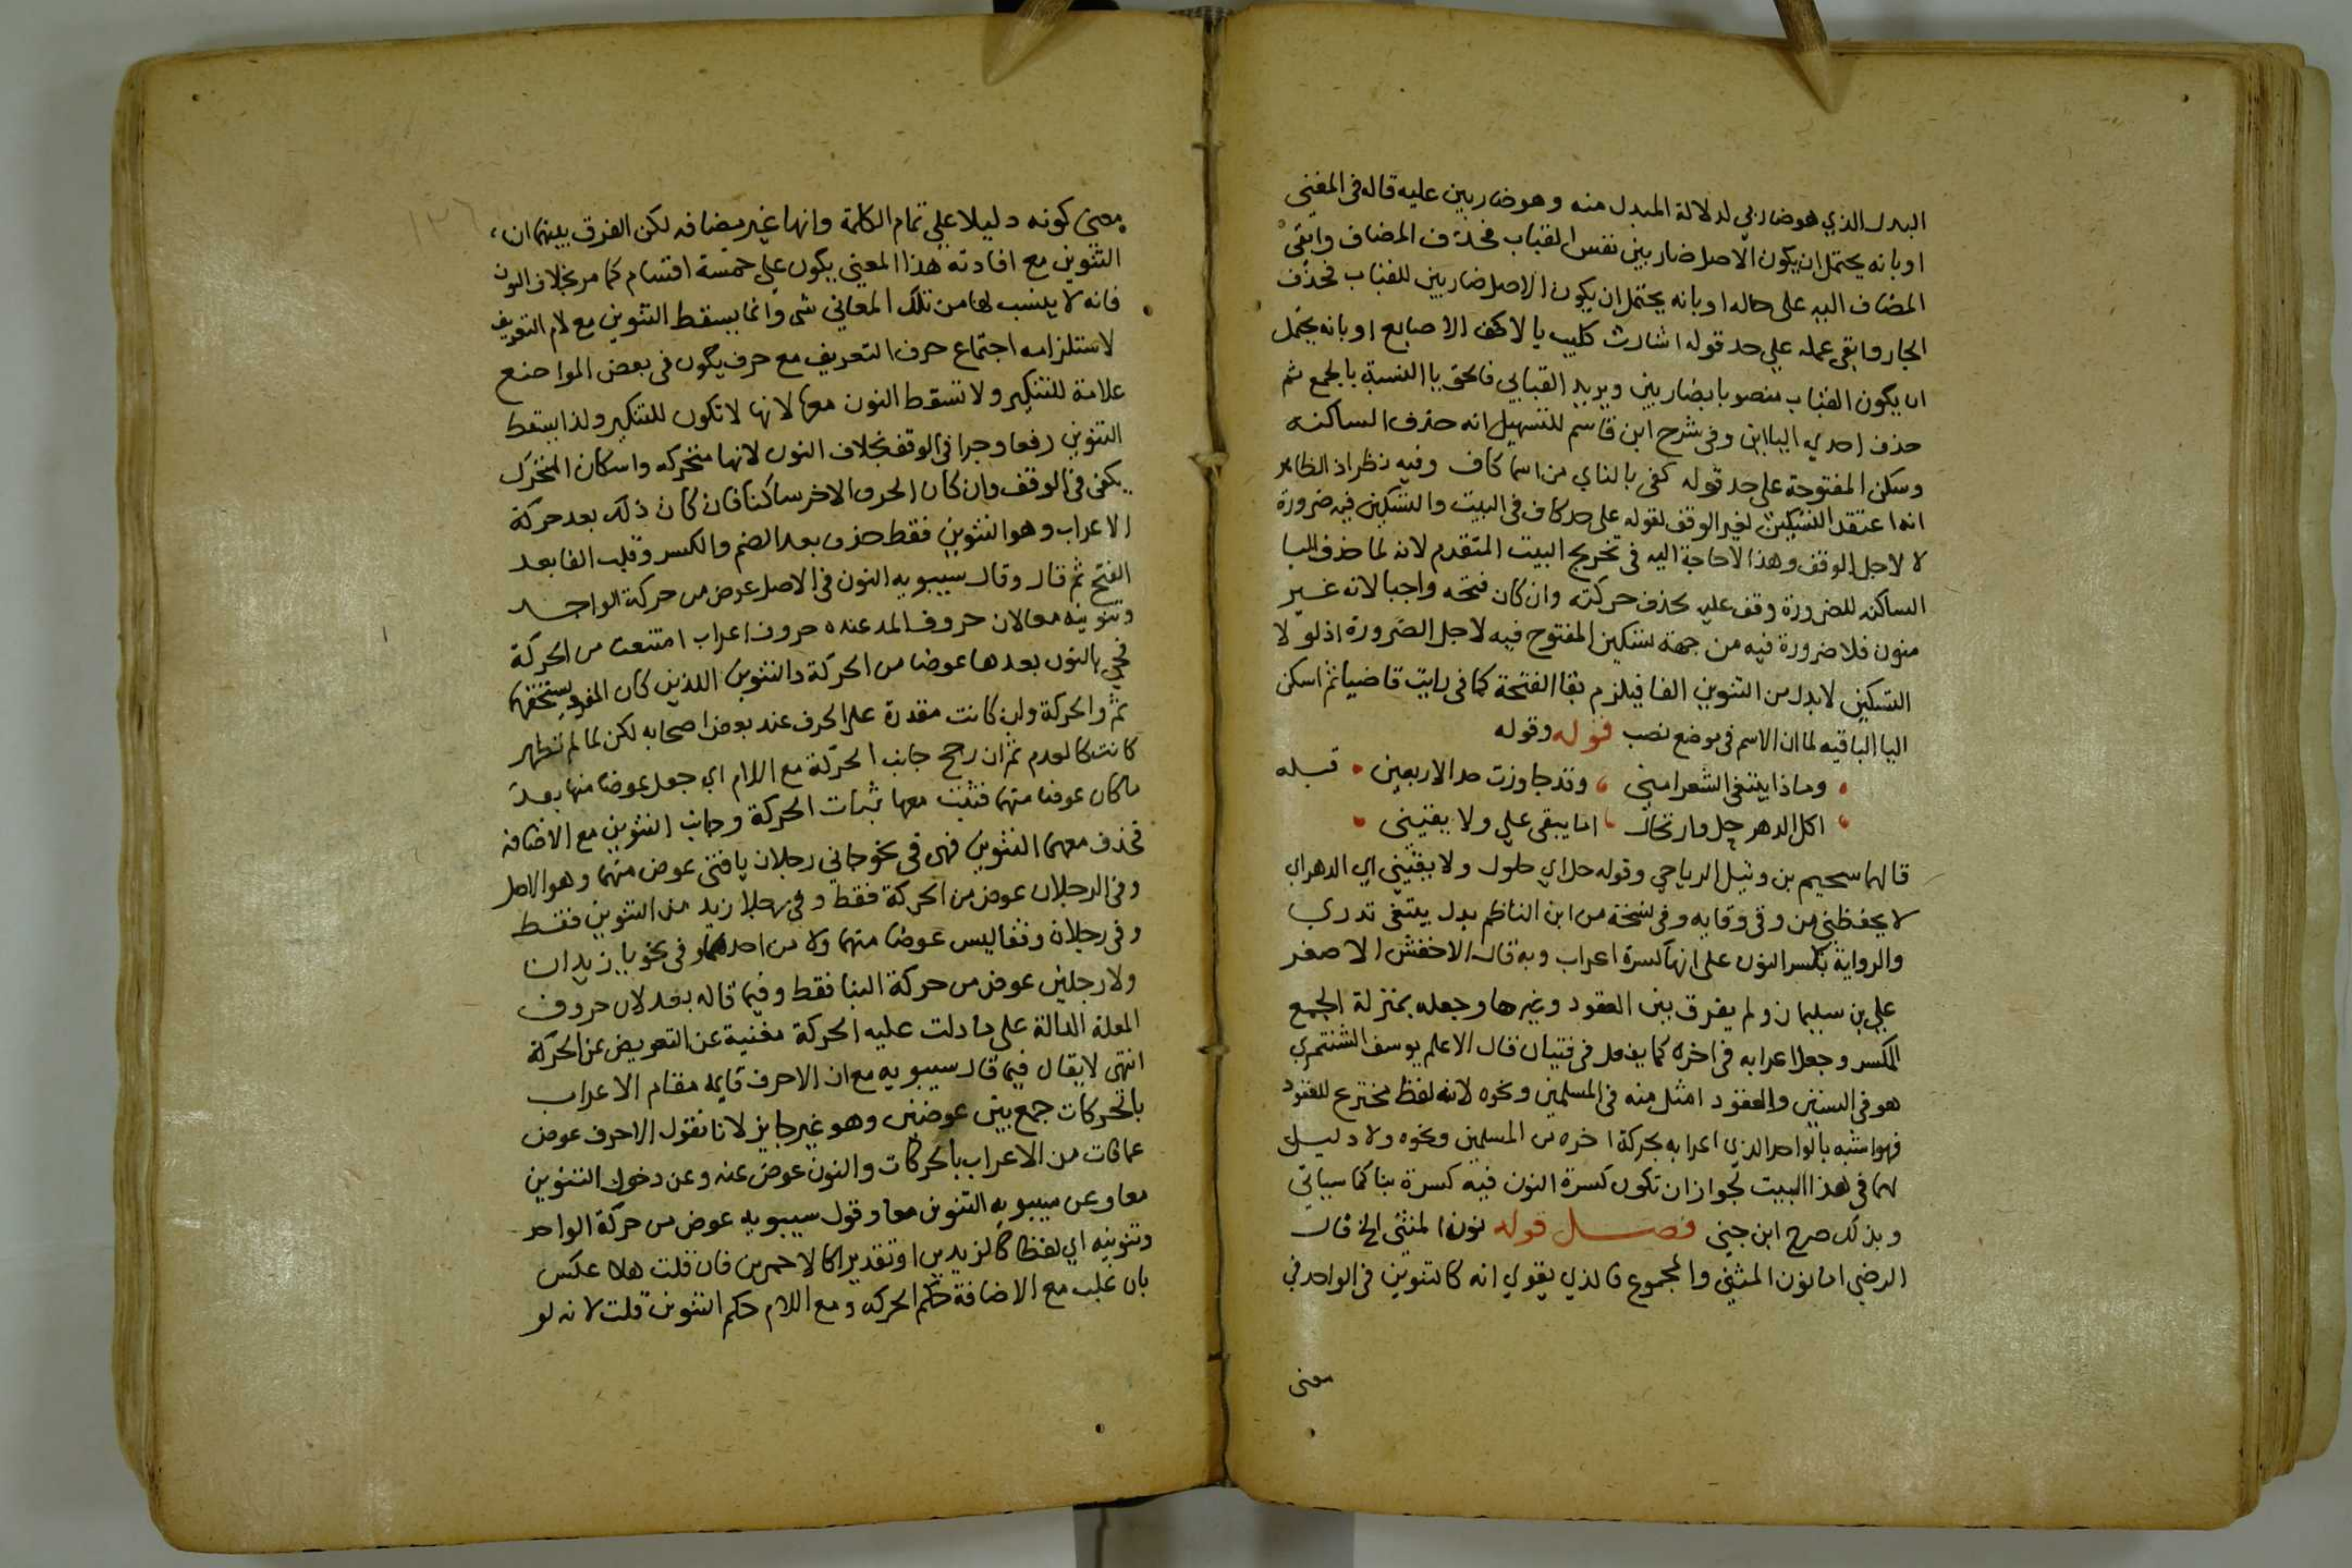 البدل الذي هو ضاربي لدلالة المبدل منه وهو ضاربين عليه قاله في المغني
او بانه يحتمل ان يكون الاصل ضاربين نفس القباب فحذف المضاف وابقي
المضاف اليه على حاله او بانه يحتمل ان يكون الاصل ضاربين للقباب فحذف
الجار وابقي عمله علي حد قوله اشارت كليب بالاكف الاصابع او بانه يحتمل
ان يكون القباب منصوبا بضاربين ويريد القبابي فالحق يا النسبة بالجمع ثم
حذف احدي الياين وفي شرح ابن قاسم للتسهيل انه حذف الساكنه
وسكن المفتوحة على حد قوله كفى بالناي من اسما كاف وفيه نظر اذ الظاهر
انه اعتقد التسكين لغير الوقف لقوله على حد كاف في البيت والتسكين فيه ضرورة
لا لاجل الوقف وهذا لاحاجة اليه في تخريج البيت المتقدم لانه لما حذف اليا
الساكنه للضرورة وقف عليه بحذف حركته وان كان فتحه واجبا لانه غير
منون فلا ضرورة فيه من جهة تسكين المفتوح فيه لاجل الضرورة اذ لو لا
التسكين لابدل من التنوين الفا فيلزم بقا الفتحة كما في رايت قاضيا ثم اسكن
اليا الباقيه لما ان الاسم في موضع نصب قوله وقوله
وماذا يبتغي الشعرا مني وقد جاوزت حد الاربعين قبله
اكل الدهر حل وارتحال اما يبقي علي ولا يقيني
قالهما سحيم بن وثيل الرياحي وقوله حل اي حلول ولا يقيني اي الدهر اي
لا يحفظني من وقي وقايه وفي نسخة من ابن الناظم بدل يبتغي تدري
والرواية بكسر النون على انها كسرة اعراب وبه قال الاخفش الاصغر
علي بن سليمان ولم يفرق بين العقود وغيرها وجعله بمنزلة الجمع
المكسر وجعل اعرابه في اخره كما يفعل في فتيان قال الاعلم يوسف الشنتمري
هو في السنين والعقود امثل منه في المسلمين ونحوه لانه لفظ مخترع للعقود
فهو اشبه بالواحد الذي اعرابه بحركة اخره من المسلمين ونحوه ولا دليل
لهما في هذا البيت لجواز ان تكون كسرة النون فيه كسرة بنا كما سياتي
وبذلك صرح ابن جني فصل قوله نون المثني الخ قال
الرضي اما نون المثني والمجموع فالذي يقوي انه كالتنوين في الواحد في
معنى
معنى كونه دليلا علي تمام الكلمة وانها غير مضافه لكن الفرق بينهما ان
التنوين مع افادته هذا المعني يكون علي خمسة اقسام كما مر بخلاف النون
فانه لا ينسب لها من تلك المعاني شي وانما يسقط التنوين مع لام التعريف
لاستلزامه اجتماع حرف التعريف مع حرف يكون في بعض المواضع
علامة للتنكير ولا تسقط النون معها لانها لا تكون للتنكير ولذا يسقط
التنوين رفعا وجرا في الوقف بخلاف النون لانها متحركه واسكان المتحرك
يكفي في الوقف وان كان الحرف الاخر ساكنا فان كان ذلك بعد حركة
الاعراب وهو التنوين فقط حذف بعد الضم والكسر وقلب الفا بعد
الفتح ثم قال وقال سيبويه النون في الاصل عوض من حركة الواحد
وتنوينه معا لان حروف المد عنده حروف اعراب امتنعت من الحركة
فجي بالنون بعدها عوضا من الحركة والتنوين اللذين كان المفرد يستحقهما
ثم والحركة وان كانت مقدرة على الحرف عند بعض اصحابه لكن لما لم تظهر
كانت كالعدم ثم ان رجح جانب الحركة مع اللام اي جعل عوضا منها بعد
ما كان عوضا منهما فثبت معها ثبات الحركة وجانب التنوين مع الاضافه
فحذف معهما التنوين فهي في نحو جاني رجلان يا فتي عوض منهما وهو الاصل
وفي الرجلان عوض من الحركة فقط وفي رجلا زيد من التنوين فقط
وفي رجلان وقفا ليس عوضا منهما ولا من احدهما وفي نحو يا زيدان
ولا رجلين عوض من حركة البنا فقط وفيما قاله بعد لان حروف
العلة الدالة على ما دلت عليه الحركة مغنية عن التعويض عن الحركة
انتهى لا يقال فيما قال سيبويه مع ان الاحرف قايمه مقام الاعراب
بالحركات جمع بين عوضين وهو غير جايز لانا نقول الاحرف عوض
عما فات من الاعراب بالحركات والنون عوض عنه وعن دخول التنوين
معا وعن سيبويه التنوين معا وقول سيبويه عوض من حركة الواحد
وتنوينه اي لفظا كالزيدين او تقديرا كالاحمرين فان قلت هلا عكس
بان غلب مع الاضافة حكم الحركه ومع اللام حكم التنوين قلت لانه لو